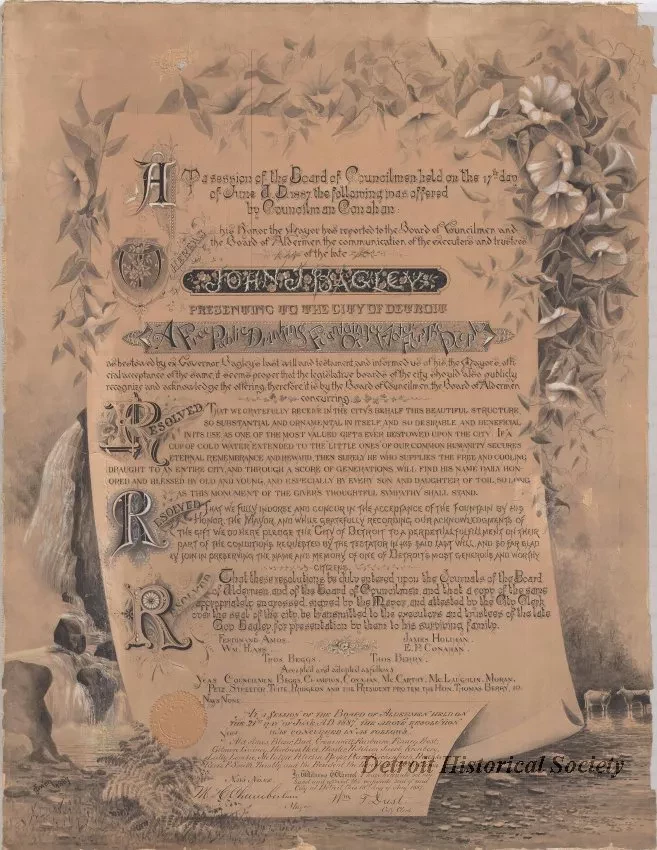 AT a session of the Board of Councilmen held on the 17th day
of June A.D. 1887 the following was offered
by Councilman Conahan
WHEREAS his Honor the Mayor has reported to the Board of Councilmen and
the Board of Aldermen the communication of the executers and trustees
of the late
JOHN J. BAGLEY
PRESENTING TO THE CITY OF DETROIT
A Free Public Drinking Fountain
as bestowed by ex Governor Bagley's last will and testament and informed us of his the Mayor's offi
cial acceptance of the same, it seems proper that the legislative boards of the city should also publicly
recognize and acknowledge the offering, therefore it is by the Board of Councilmen, the Board of Aldermen
concurring
RESOLVED THAT WE GRATEFULLY RECEIVE IN THE CITY'S BEHALF THIS BEAUTIFUL STRUCTURE
SO SUBSTANTIAL AND ORNAMENTAL IN ITSELF AND SO DESIRABLE AND BENEFICIAL
IN ITS USE AS ONE OF THE MOST VALUED GIFTS EVER BESTOWED UPON THE CITY IF A
CUP OF COLD WATER EXTENDED TO THE LITTLE ONES OF OUR COMMON HUMANITY SECURES
ETERNAL REMEMBRANCE AND REWARD, THEN SURELY HE WHO SUPPLIES THE FREE AND COOLING
DRAUGHT TO AN ENTIRE CITY, AND THROUGH A SCORE OF GENERATIONS, WILL FIND HIS NAME DAILY HON
ORED AND BLESSED BY OLD AND YOUNG, AND ESPECIALLY BY EVERY SON AND DAUGHTER OF TOIL, SO LONG
AS THIS MONUMENT OF THE GIVER'S THOUGHTFUL SYMPATHY SHALL STAND.
RESOLVED THAT WE FULLY INDORSE AND CONCUR IN THE ACCEPTANCE OF THE FOUNTAIN BY HIS
HONOR, THE MAYOR, AND WHILE GRATEFULLY RECORDING OUR ACKNOWLEDGMENTS OF
THE GIFT WE DO HERE PLEDGE THE CITY OF DETROIT TO A PERPETUAL FULFILLMENT ON THEIR
PART OF THE CONDITIONS REQUESTED BY THE TESTATOR IN HIS SAID LAST WILL, AND SO FAR GLAD
LY JOIN IN PRESERVING THE NAME AND MEMORY OF ONE OF DETROIT'S MOST GENEROUS AND WORTHY
CITIZENS.
RESOLVED That these resolutions be duly entered upon the Journals of the Board
of Aldermen and of the Board of Councilmen and that a copy of the same
appropriately engrossed, signed by the Mayor, and attested by the City Clerk
under the seal of the city, be transmitted to the executors and trustees of the late
Gov. Bagley, for presentation by them to his surviving family.
FERDINAND AMOS. JAMES HOLIHAN.
WM. HAHN E.P. CONAHAN.
THOS. BEGGS. THOS. BERRY.
Accepted and adopted as follows
YEAS COUNCILMEN BEGGS, CONAHAN, MC CARTHY, MC LAUGHLIN, MORAN,
AND THE PRESIDENT PRO TEM THE HON. THOMAS BERRY, 10.
NAYS NONE
AT A SESSION OF THE BOARD OF ALDERMEN HELD ON
THE 21st DAY OF JUNE A.D. 1887 THE ABOVE RESOLUTION
WAS CONCURRED IN AS FOLLOWS.
YEAS
NAYS NONE
M. H. Chamberlain
Mayor
City Clerk
Detroit Historical Society